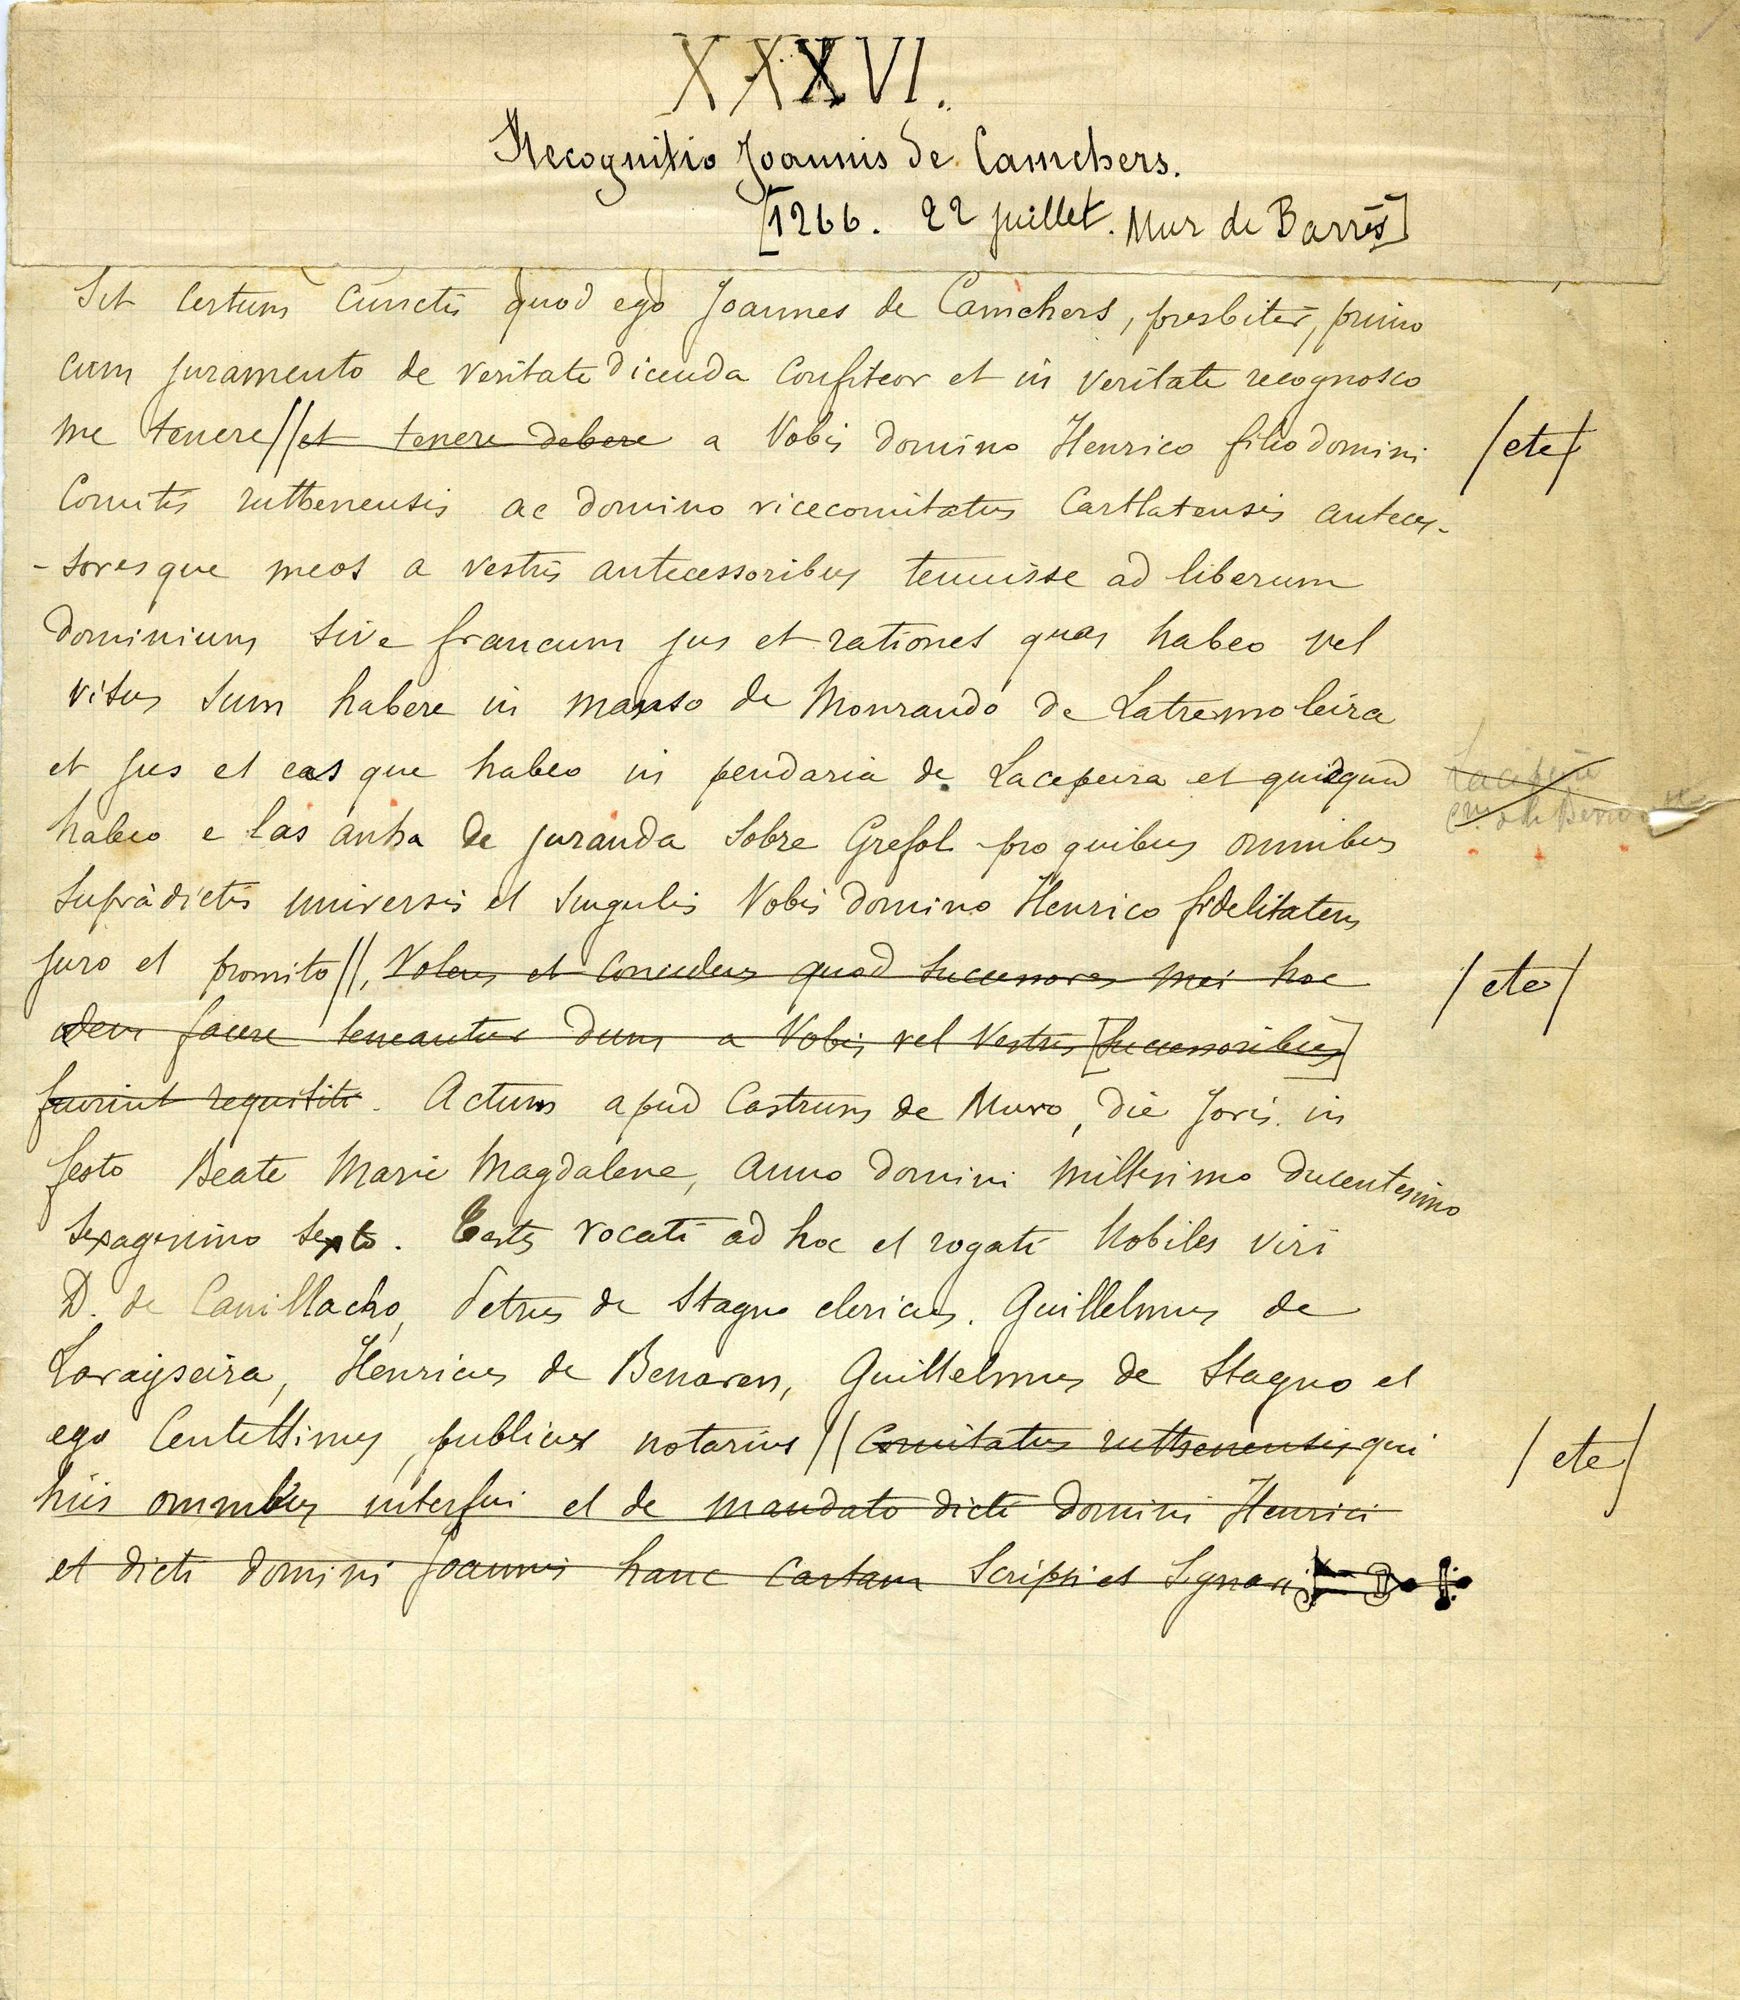 XXXVI.
Recognitio Joannis de Camchers.
[1266. 22 juillet. Mur de Barrès]
Sit certum cunctis quod ego Joannes de Camchers, presbiter, primo
cum juramento de veritate dicenda confiteor et in veritate recognosco
me tenere // et tenere debere a Vobis domino Henrico filio domini /etc/
Comitis ruthenensis ac domino vicecomitatus Carlatensis anteces-
-soresque meos a vestris antecessoribus tenuisse ad liberum
dominium sive francum jus et rationes quas habeo vel
visus sum habere in manso de Monrando de Latremoleira
et jus et eas que habeo in pendaria de Lacepeira et quidquid
habeo e las anha de juranda sobre Grefol pro quibus omnibus
supradictis universis et singulis Vobis domino Henrico fidelitatem
juro et promito //, Volens et concedens quod successores mei hoc /etc/
idem facere teneantur dum a Vobis vel Vestris [successoribus]
fuerint requisiti. Actum apud Castrum de Muro, die Jovis in
festo Beate Marie Magdalene, anno domini millesimo ducentesimo
sexagesimo sexto. Testes vocati ad hoc et rogati Nobiles viri
D. de Canillacho, Petrus de Stagno clericus. Guillelmus de
Lavayseira, Henricus de Benaven, Guillelmus de Stagno et
ego Centellinus, publicus notarius // Comitatus ruthenensis qui /etc/
hiis omnibus interfui et de mandato dicti domini Henrici
et dicti domini Joannis hanc cartam scripsi et signavi